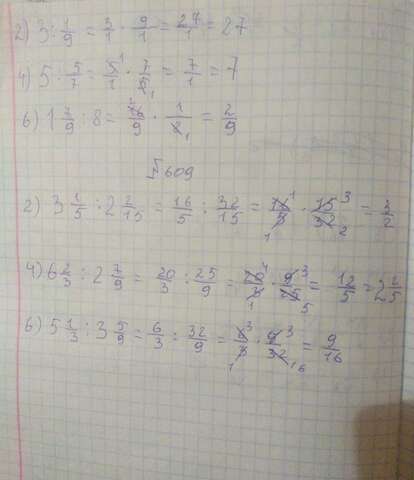 2) 3 : 1/9 = 3/1 · 9/1 = 27/1 = 27
4) 5 : 5/7 = 5/1 · 7/5 = 7/1 = 7
6) 1 7/9 : 8 = 16/9 · 1/8 = 2/9
609
2) 3 1/5 : 2 2/15 = 16/5 : 32/15 = 16/5 · 15/32 = 3/2
4) 6 2/3 : 2 7/9 = 20/3 : 25/9 = 20/3 · 9/25 = 12/5 = 2 2/5
6) 5 1/3 : 3 5/9 = 6/3 : 32/9 = 6/3 · 9/32 = 9/16